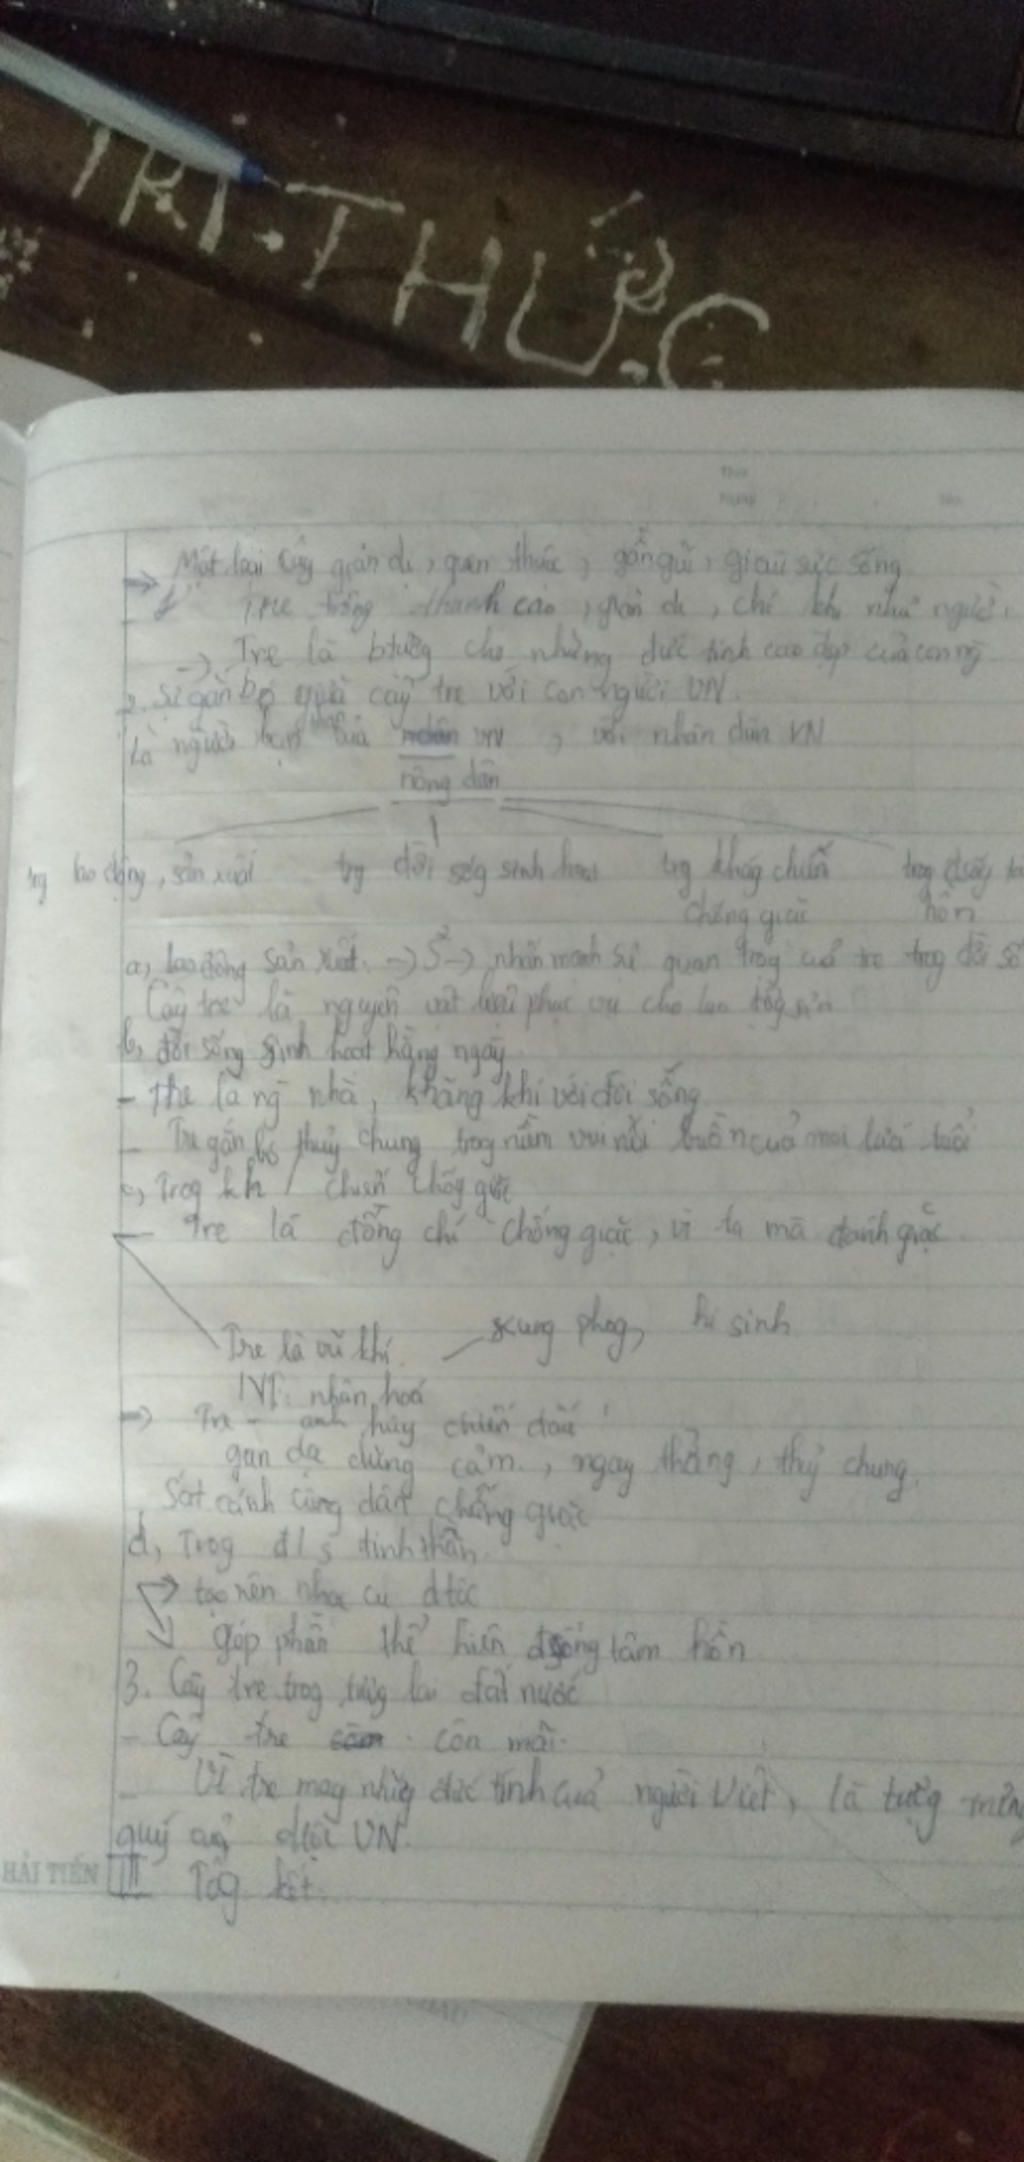 TRI THỨC
Một loài cây giản dị, quen thuộc, gần gũi, giàu sức sống
Tre trông thanh cao, giản dị, chí khí như người
-> Tre là btượg cho những đức tính cao đẹp của con ng
2. Sự gắn bó của cây tre với con người VN
Là người bạn của VN, với nhân dân VN
nông dân
trg lao động, sản xuất trg đời sốg sinh hoạt trg khág chiến trog
chống giặc hồn
a, lao động sản xuất -> S² -> nhấn mạnh sự quan trog cuả tre trog đời số
Cây tre là nguyên vật liệu phục vụ cho lao
b, đời sống sinh hoạt hằng ngày
- tre là ng nhà, khăng khí với đời sống
- Tre gắn bó thuỷ chung trog niềm vui nỗi buồn cuả mọi lứa tuổi
c, Trog kh/chiến chốg giặc
- Tre là đồng chí chống giặc, vì ta mà đánh giặc
Tre là vũ khí xung phog, hi sinh
NT: nhân hoá
-> Tre - anh hùg chiến đấu
gan dạ dũng cảm, ngay thẳng, thuỷ chung.
Sát cánh cùng dân chống giặc
d, Trog đ/s tinh thần
-> tạo nên nhạc cụ dtộc
góp phần thể hiện đ sống tâm hồn
3. Cây tre trog tươg lai đất nước
- Cây tre còn mãi.
- Vì tre mag nhữg đức tính cuả người Việt, là tượg trưng
quý của dtộc VN.
HẢI TIẾN III Tổg kết.